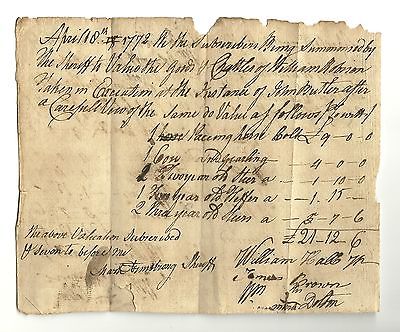 April 18th 1792 We the Subscribers Being Summonsed by
the Sheriff to Value the goods & Chattles of William
Taken in Execution at the Instance of John after
a Carefull View of the same do Value as follows
1 Paceing Horse Colt £ 9 - 0 - 0
1 Cow and yearling 4 - 0 - 0
1 Two year old Stier a 1 - 10 - 0
1 Two year old Heffer a 1 - 15 -
2 year old a 5 - 7 - 6
£ 21 - 12 - 6
the above Valuation Subscribed
& Sworn to before me
Mark Armstrong Sheriff
William Hall
James Brown
Wm